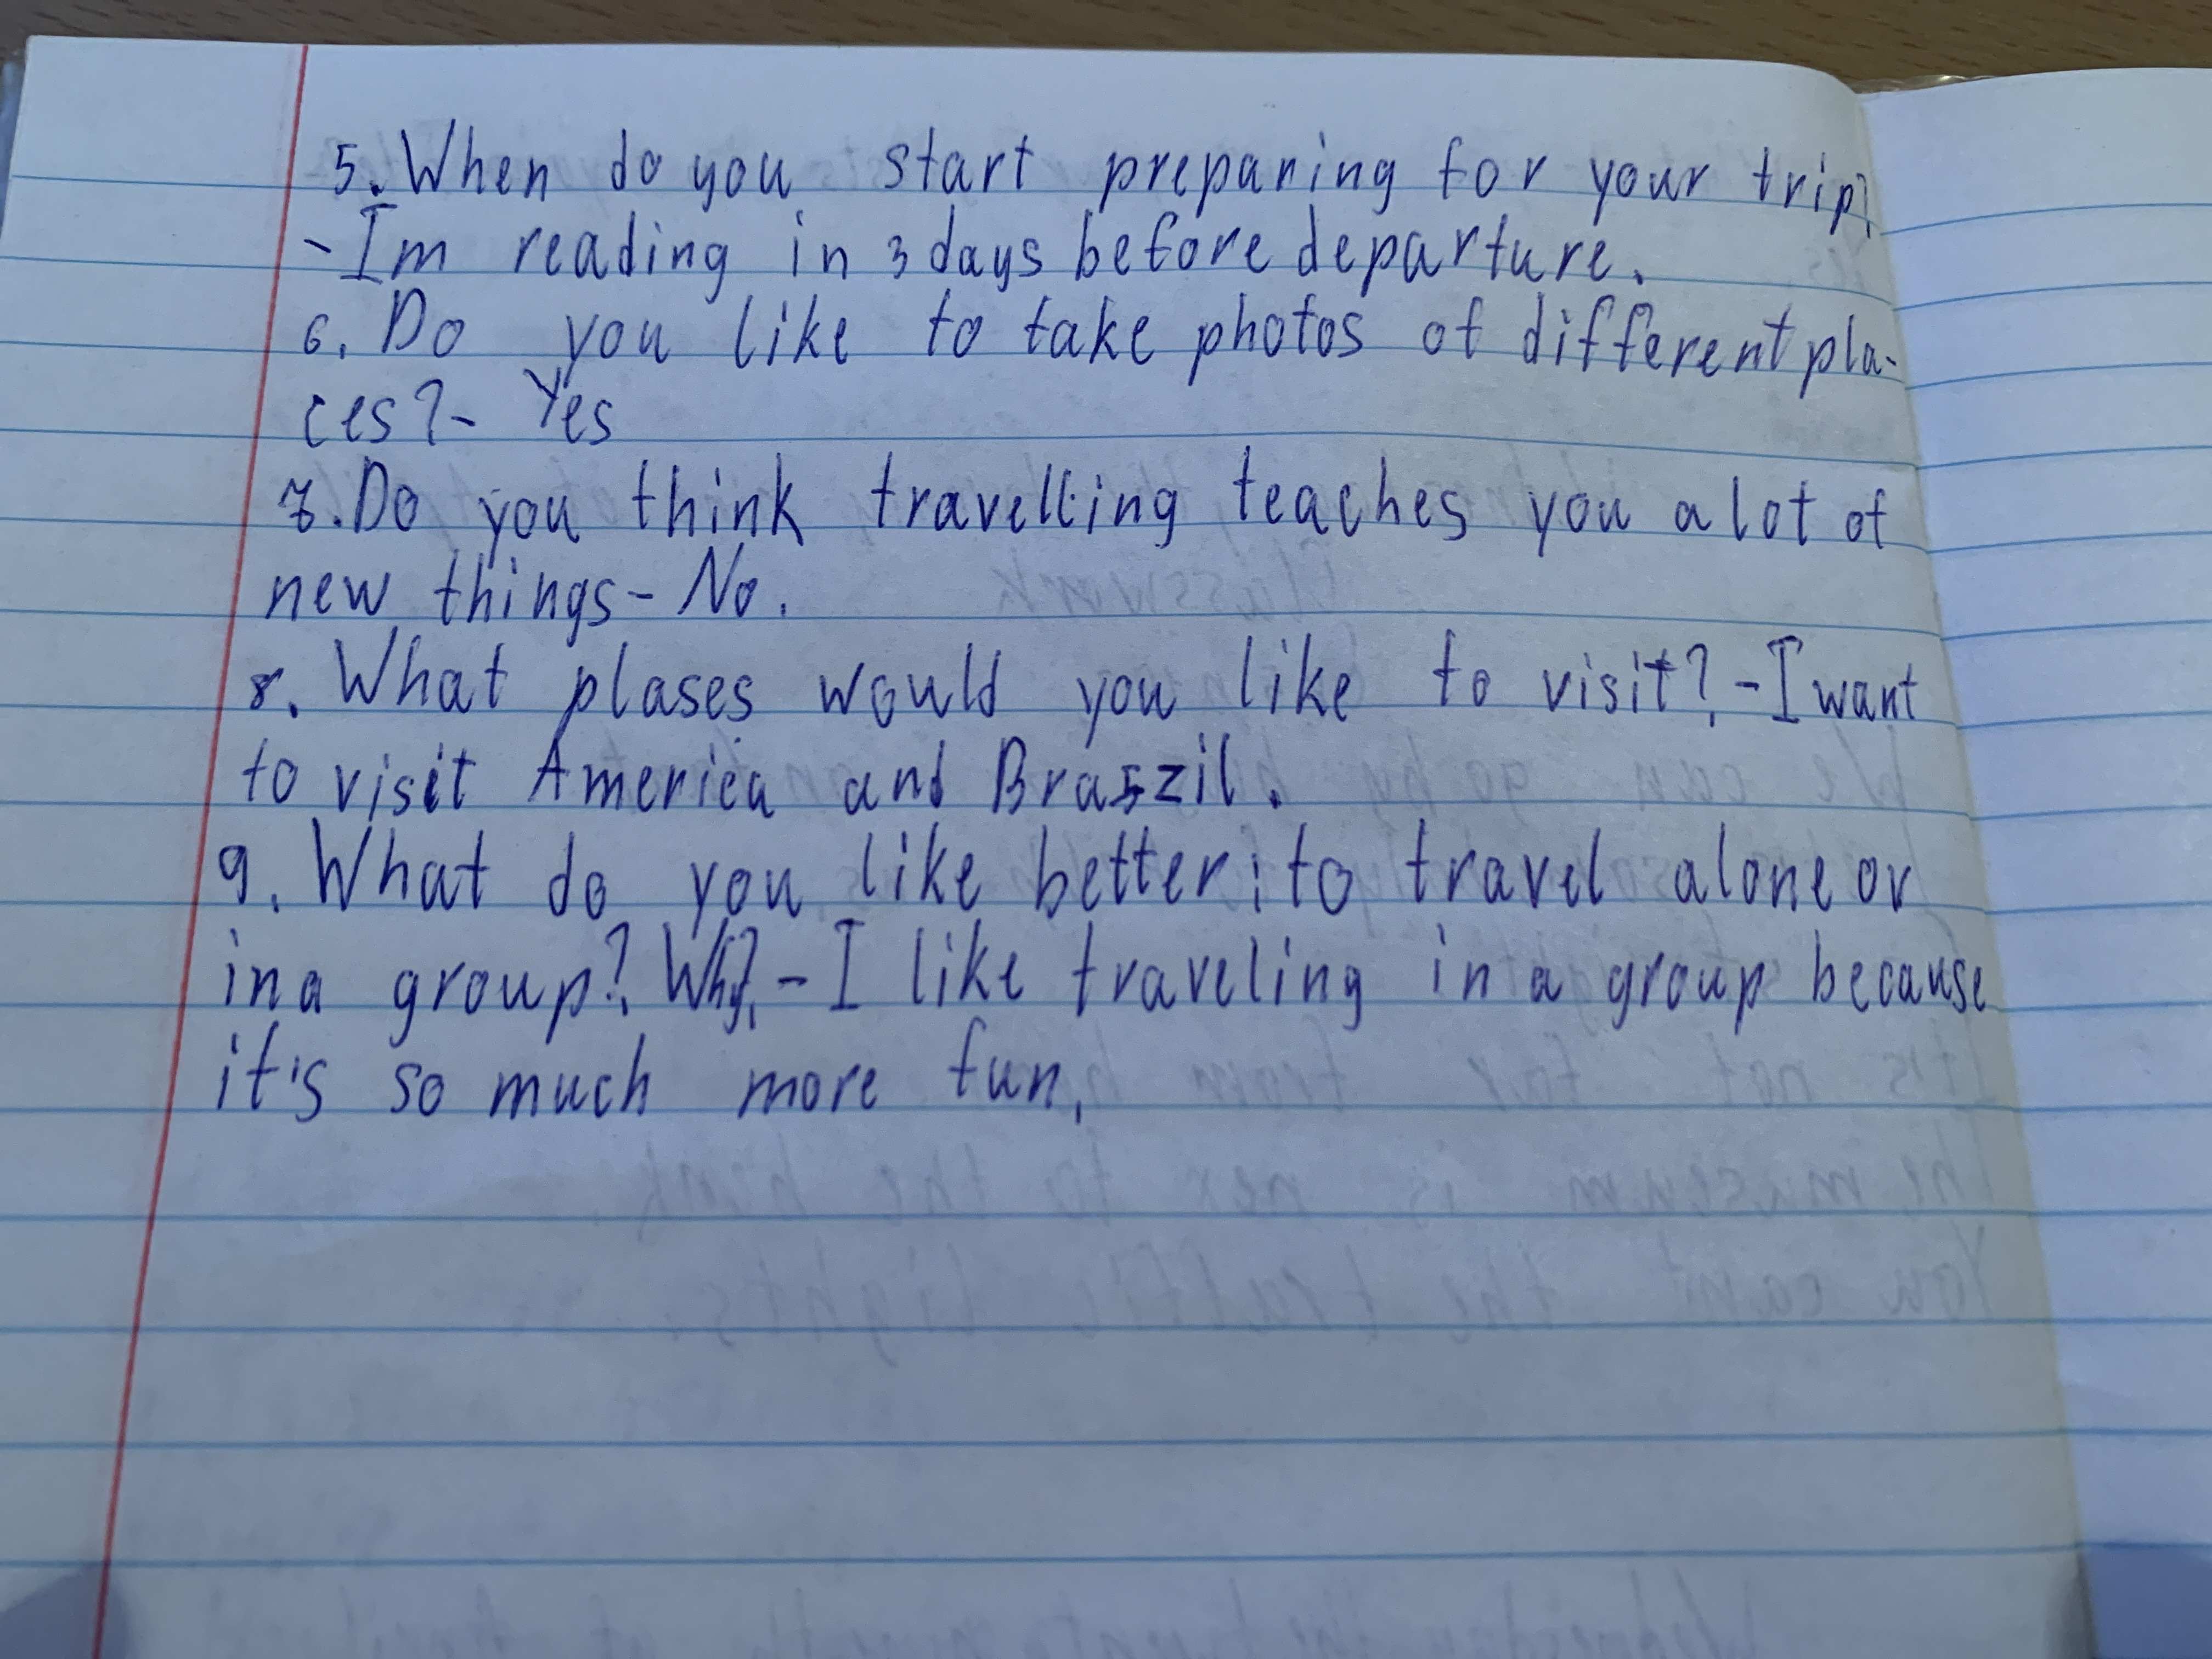 5. When do you start preparing for your trip?
- Im reading in 3 days before departure.
6. Do you like to take photos of different pla-
ces? - Yes
7. Do you think travelling teaches you a lot of
new things - No.
8. What plases would you like to visit? - I want
to visit America and Braszil.
9. What do you like better: to travel alone or
in a group? Why? - I like traveling in a group because
it's so much more fun.